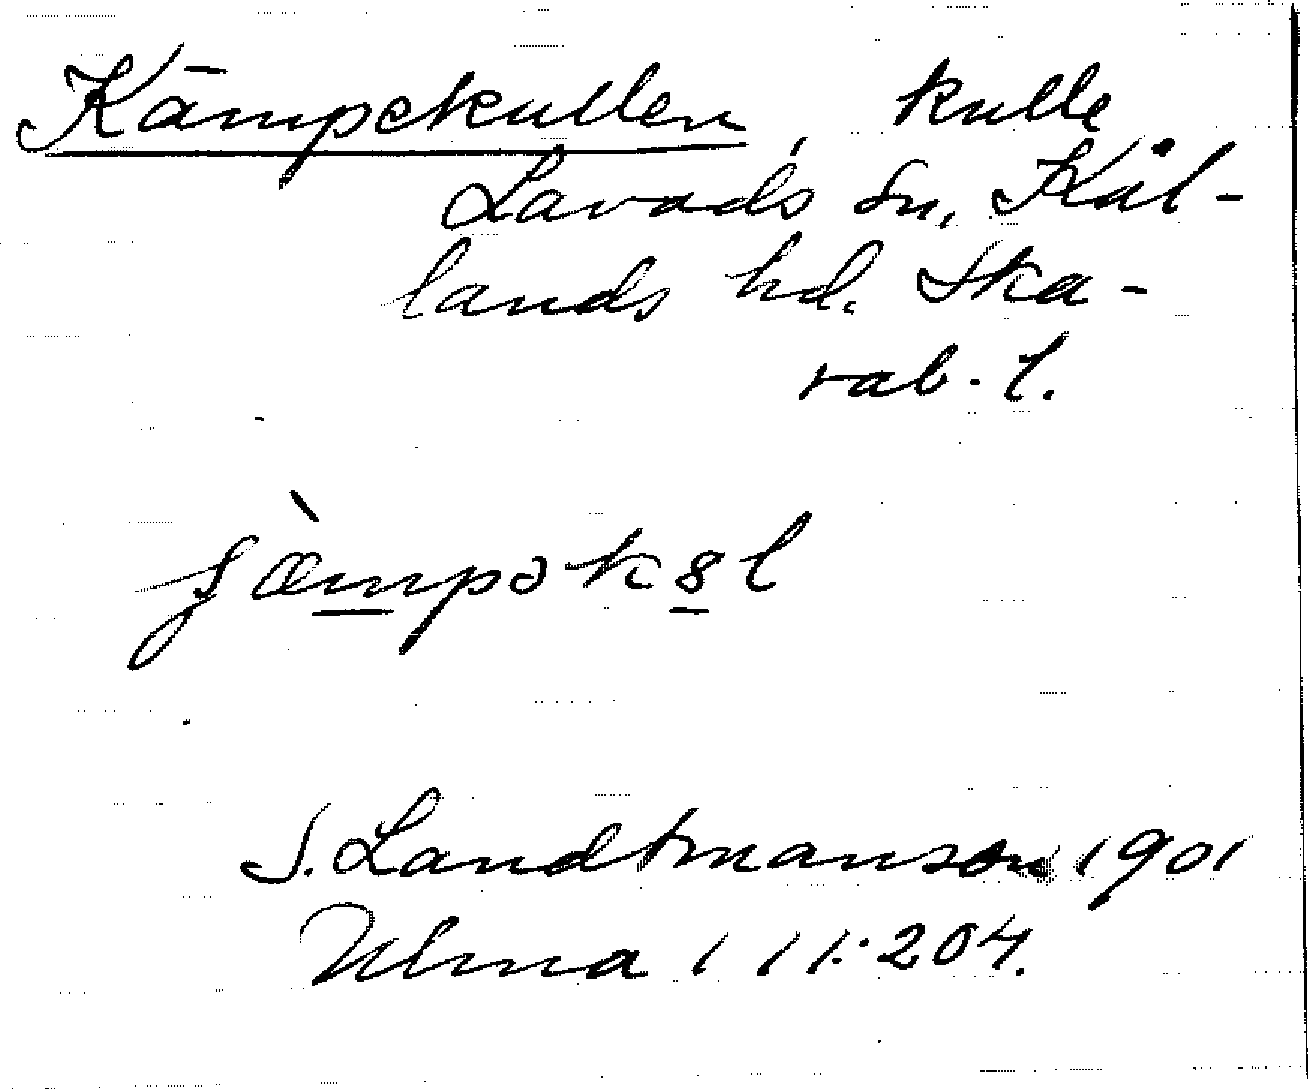 Kämpekullen, kulle
Lavads sn, Kål-
lands hd. Ska-
rab. l.
S. Landtmanson 1901
Ulma 111:204.